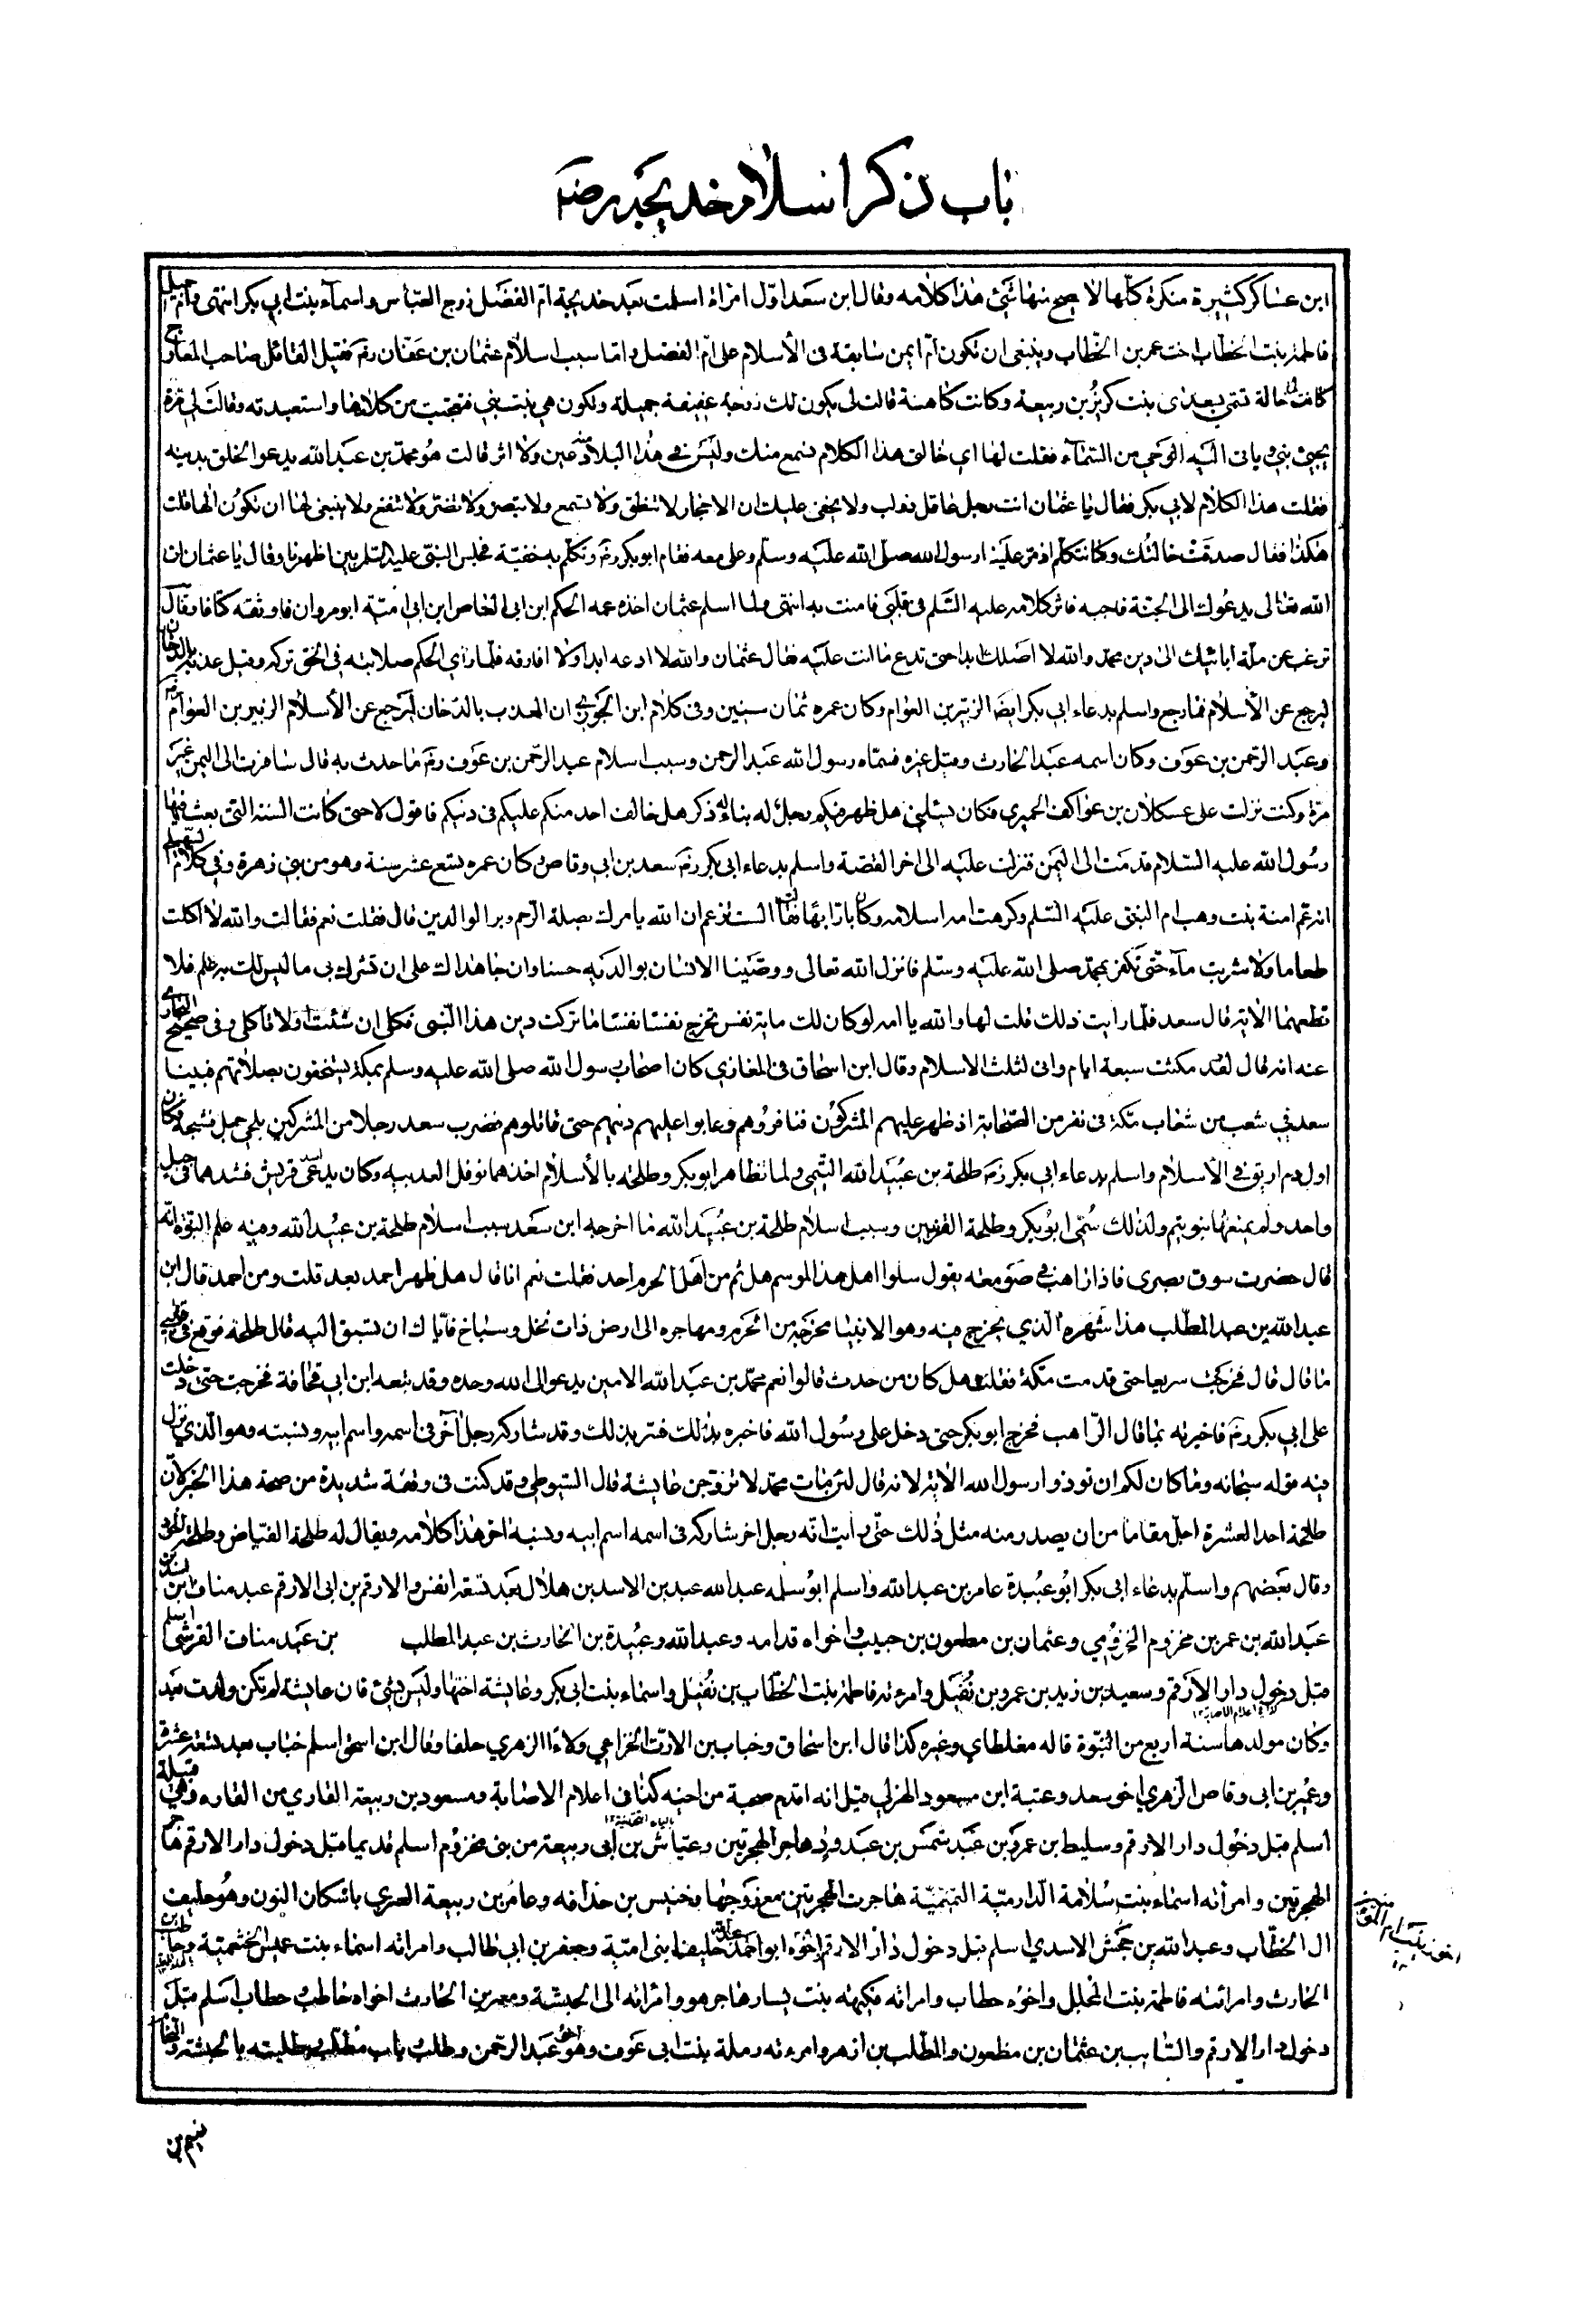 باب ذكر اسلام خديجة رضـ
ابن عساكر كثيرة منكرة كلّها لا يصح منها شئ هذا كلامه وقال ابن سعد اوّل امراة اسلمت بعد خديجة امّ الفضل زوج العبّاس واسمآء بنت ابي بكر انتهى وامّ جميل
فاطمة بنت الخطّاب اخت عمر بن الخطّاب وينبغي ان تكون امّ ايمن سابقة فى الأسلام على امّ الفضل وامّا سبب اسلام عثمان بن عفّان رضـ فقيل القائل صاحب المعارج
كانت لى خالة تسمّى بعدى بنت كريز بن ربيعة وكانت كاهنة قالت لى يكون لك زوجة عفيفة جميلة وتكون هي بنت نبي فتعجبت من كلامها واستعيدته وقالت لى مرّة
يجئ نبي ياتى اليه الوحي من السّمآء فقلت لها اي خالتى هذا الكلام نسمع منك وليس فى هذا البلاد منه عين ولا اثر قالت هو محمّد بن عبد الله يدعوا الخلق بدينه
فقلت هذا الكلام لابي بكر فقال يا عثمان انت رجل عاقل ولا يخفى عليك ان الاحجار لا تنطق ولا تسمع ولا تبصر ولا تضرّ ولا تنفع ولا ينبغى لها ان تكون الها قلت
هكذا فقال صدقت خالتك وكنا نتكلّم اذ مرّ علينا رسول الله صلى الله عليه وسلّم وعلى معه فقام ابو بكر رضـ وتكلّم به خفيّة فجلس النبيّ عليه السّلم بين اظهرنا وقال يا عثمان ان
الله تعالى يدعوك الى الجنّة فاجبه فاثر كلامه عليه السّلم فى قلبى فامنت به انتهى ولما اسلم عثمان اخذه عمه الحكم ابن ابى العاص ابن ابى اميّة ابو مروان فاوثقه كتافا وقال
ترغب عن ملّة ابائك الى دين محمّد والله لا احلك ابدا حتى تدع ما انت عليه فقال عثمان والله لا ادعه ابدا ولا افارقه فلما راى الحكم صلابته فى الحق تركه وقيل عذبه بالدّخان
ليرجع عن الأسلام فما رجع واسلم بدعاء ابى بكر ايضا الزبير بن العوّام وكان عمره ثمان سنين وفى كلام ابن الجوزي ان المعذب بالدّخان ليرجع عن الأسلام الزبير بن العوّام رضـ
وعبد الرّحمن بن عوف وكان اسمه عبد الحارث وقيل غيره فسمّاه رسول الله عبد الرحمن وسبب اسلام عبد الرّحمن بن عوف رضـ ما حدث به قال سافرت الى اليمن غير
مرّة وكنت نزلت على عسكلان بن عواكف الحميري فكان يسئلنى هل ظهر فيكم رجل له بناء له ذكر هل خالف احد منكم عليكم فى دنيكم فاقول لا حتى كانت السنة التى بعث فيها
رسول الله عليه السّلام قدمت الى اليمن فنزلت عليه الى اخر القصّة واسلم بدعاء ابى بكر رضـ سعد بن ابى وقاص كان عمره تسع عشر سنة وهو من بنى زهرة وفي كلام السّهيلي
انه عم امنة بنت وهب ام النبى عليه السّلم وكرهت امه اسلامه وكان بارّا بها فقالت الست تزعم ان الله يامرك بصلة الرّحم وبر الوالدين قال فقلت نعم فقالت والله لا اكلت
طعاما ولا شربت مآء حتّى تكفر بمحمّد صلى الله عليه وسلّم فانزل الله تعالى ووصّينا الانسان بوالديه حسنا وان جاهداك على ان تشرك بى ما ليس لك به علم فلا
تطعهما الاية قال سعد فلمّا رايت ذلك قلت لها والله يا امه لو كان لك ماية نفس تخرج نفسا نفسا ما تركت دين هذا النّبى فكلى ان شئت او لا تأكلى وفى صحيح البخارى
عنه انه قال لقد مكثت سبعة ايام وانى لثلث الاسلام وقال ابن اسحاق فى المغازي كان اصحاب رسول الله صلى الله عليه وسلم بمكة يستخفون بصلاتهم فبينا
سعد في شعب من شعاب مكّة فى نفر من الصّحابة اذ ظهر عليهم المشركون فنافروهم وعابوا عليهم دينهم حتى قاتلوهم فضرب سعد رجلا من المشركين بلحى جمل فشجه فكان
اول دم اريق في الأسلام واسلم بدعاء ابي بكر رضـ طلحة بن عبيد الله التّيمى ولما تظاهر ابو بكر وطلحة بالأسلام اخذهما نوفل العدوية وكان يدعى اسد قريش فشدهما فى حبل
واحد ولم يمنعهما بنو تيم ولذلك سمّى ابو بكر وطلحة القرينين وسبب اسلام طلحة بن عبيد الله ما اخرجه ابن سعد بسبب اسلام طلحة بن عبيد الله ومنه علم النبوّة انه
قال حضرت سوق بصرى فاذا راهب في صومعته يقول سلوا اهل هذا الموسم هل ثم من اهل الحرم احد فقلت نعم انا قال هل ظهر احمد بعد قلت ومن احمد قال ابن
عبد الله بن عبد المطّلب هذا شهره الّذي يخرج فيه وهو الانبيا مخرجه من الحرم ومهاجره الى ارض ذات نخل وسباخ فايّاك ان تسبق اليه قال طلحة فوقع فى قلبى
ما قال قال فخرجت سريعا حتى قدمت مكّة فقلت هل كان من حدث قالوا نعم محمّد بن عبد الله الامين يدعو الى الله وحده وقد تبعه ابن ابي قحافة فخرجت حتى دخلت
على ابي بكر رضـ فاخبرته بما قال الرّاهب فخرج ابو بكر حتى دخل على رسول الله فاخبره بذلك فسر بذلك وقد شاركه رجل آخر فى اسمه واسم ابيه ونسبته وهو الّذي نزل
فيه قوله سبحانه وما كان لكم ان توذوا رسول الله الاية لانه قال لئن مات محمّد لا تزوّجن عايشة قال السّيوطي وقد كنت فى وقفة شديدة من صحة هذا الخبر لانّ
طلحة احد العشرة اجل مقاما من ان يصدر منه مثل ذلك حتّى رايت انّه رجل اخر شاركه فى اسمه اسم ابيه ونسبه اخر هذا كلامه ويقال له طلحة الفيّاض وطلحة الجود
وقال بعضهم واسلم بدعاء ابى بكر ابو عبيدة عامر بن عبد الله واسلم ابو سلمه عبد الله عبد بن الاسد بن هلال بعد تسعة انفس والارقم بن ابى الارقم عبد مناف ابن
عبد الله بن عمر بن مخزوم المخزومي وعثمان بن مظعون بن حبيب واخواه قدامه وعبد الله وعبيدة بن الحارث بن عبد المطلب بن عبد مناف القرشي اسلم
قبل دخول دار الارقم وسعيد بن زيد بن عمرو بن نفيل وامرءته فاطمة بنت الخطّاب بن نفيل واسماء بنت ابى بكر وعايشة اختها وليس بشئ فان عايشة لم تكن ولدت بعد
وكان مولدها سنة اربع من النبّوة قاله مغلطاي وغيره كذا قال ابن اسحاق وخباب بن الارتّ الخزاعي ولاءًا الزهري حلفا وقال ابن اسحق اسلم خبّاب بعد تسعة عشر
وعمير بن ابى وقاص الزهري اخو سعد وعتبة ابن مسعود الهزلي قيل انه اقدم صحبة من اخيه كذا فى اعلام الاصابة ومسعود بن ربيعة القاري من القاره وهي قبيلة
اسلم قبل دخول دار الارقم وسليط بن عمرو بن عبد شمس بن عبد ودّ هاجر الهجرتين وعيّاش بن ابى ربيعة من بنى مخزوم اسلم قديما قبل دخول دار الارقم هاجر
الهجرتين وامرأته اسماء بنت سلامة الدّارميّة التميميّة هاجرت الهجرتين مع زوجها وخنيس بن حذافه وعامر بن ربيعة العنزي باسكان النون وهو حليف
ال الخطّاب وعبد الله بن جحش الاسدي اسلم قبل دخول دار الارقم واخوه ابو احمد حليفا بنى اميّة وجعفر بن ابى طالب وامراته اسماء بنت عميس الخثعميّة وحاطب بن
الحارث وامرائته فاطمة بنت المحلل واخوه حطاب وامراته فكيهه بنت يسار هاجر هو وامراته الى الحبشة ومعمر بن الحارث اخواه خاطب حطاب اسلم قبل
دخول دار الارقم والسّايب بن عثمان بن مظعون والمطّلب بن ازهر وامرءته رملة بنت ابى عوف وهو اخو عبد الرّحمن وطلب